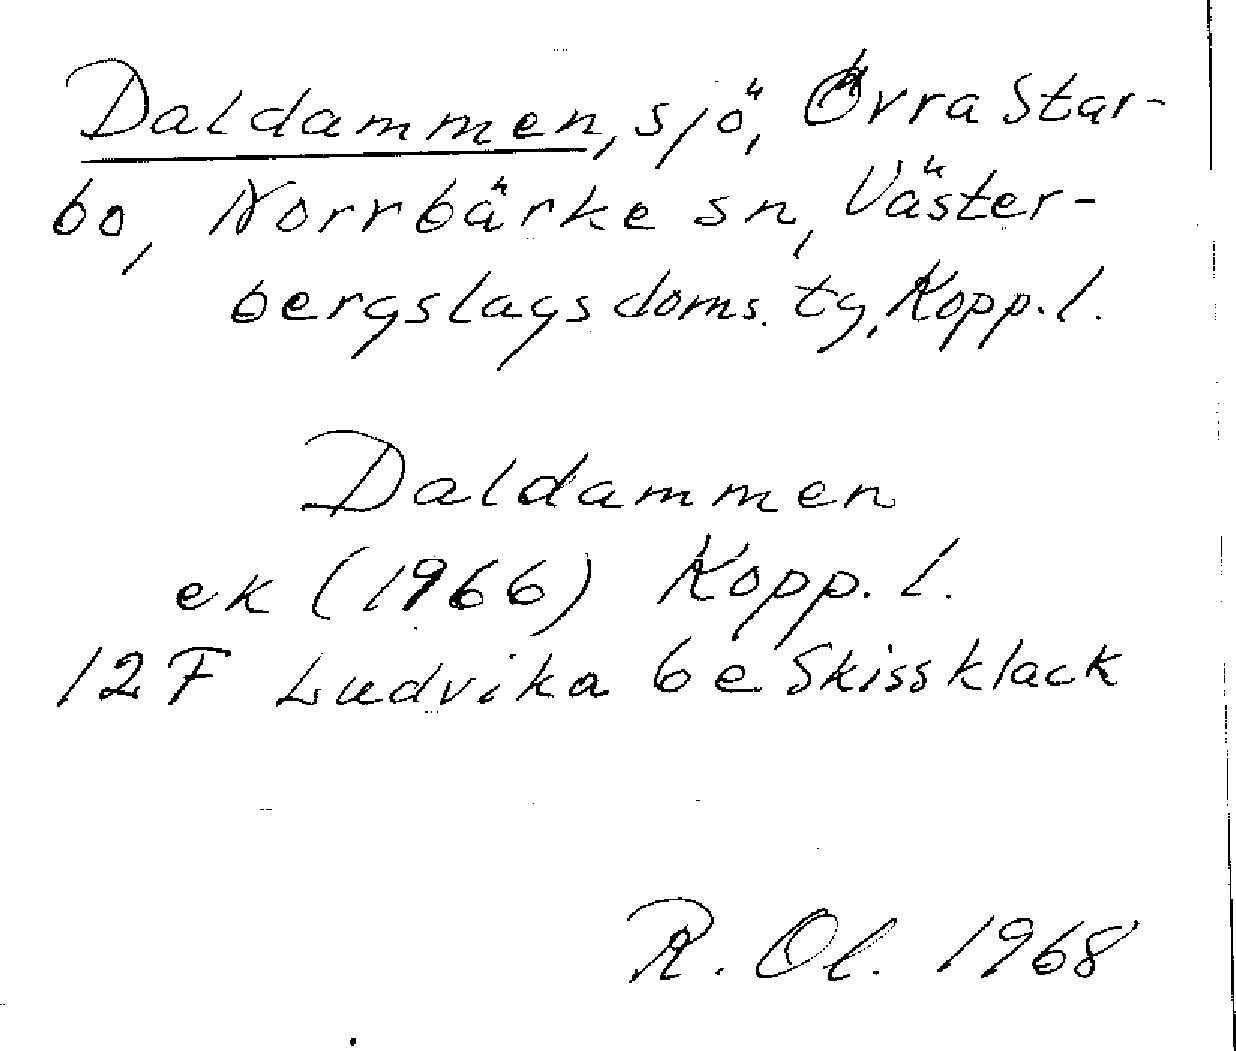 Daldammen, sjö, Övra Star-
bo, Norrbärke sn, Väster-
bergslags doms. tg, Kopp. l.
Daldammen
ek (1966) Kopp. l.
12 F Ludvika 6 e Skissklack
R. Ol. 1968